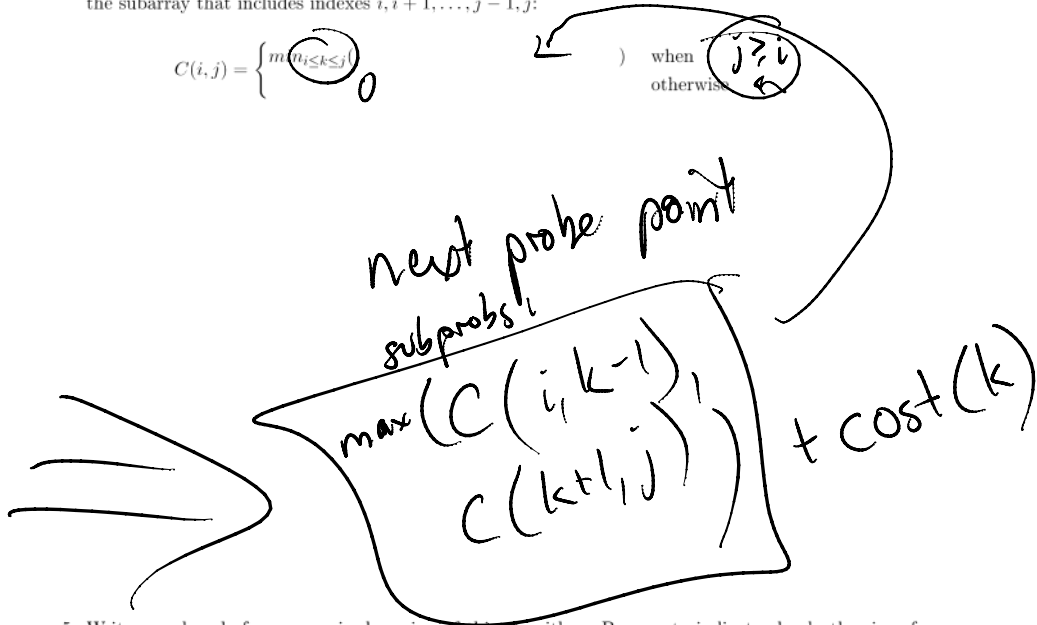 the subarray that includes indexes i, i + 1, . . . , j − 1, j:
C(i, j) = { min_{i≤k≤j}( ) when j ≥ i
0 otherwise
next probe point
subprobs!
max(C(i, k-1),
C(k+1, j)) + cost(k)